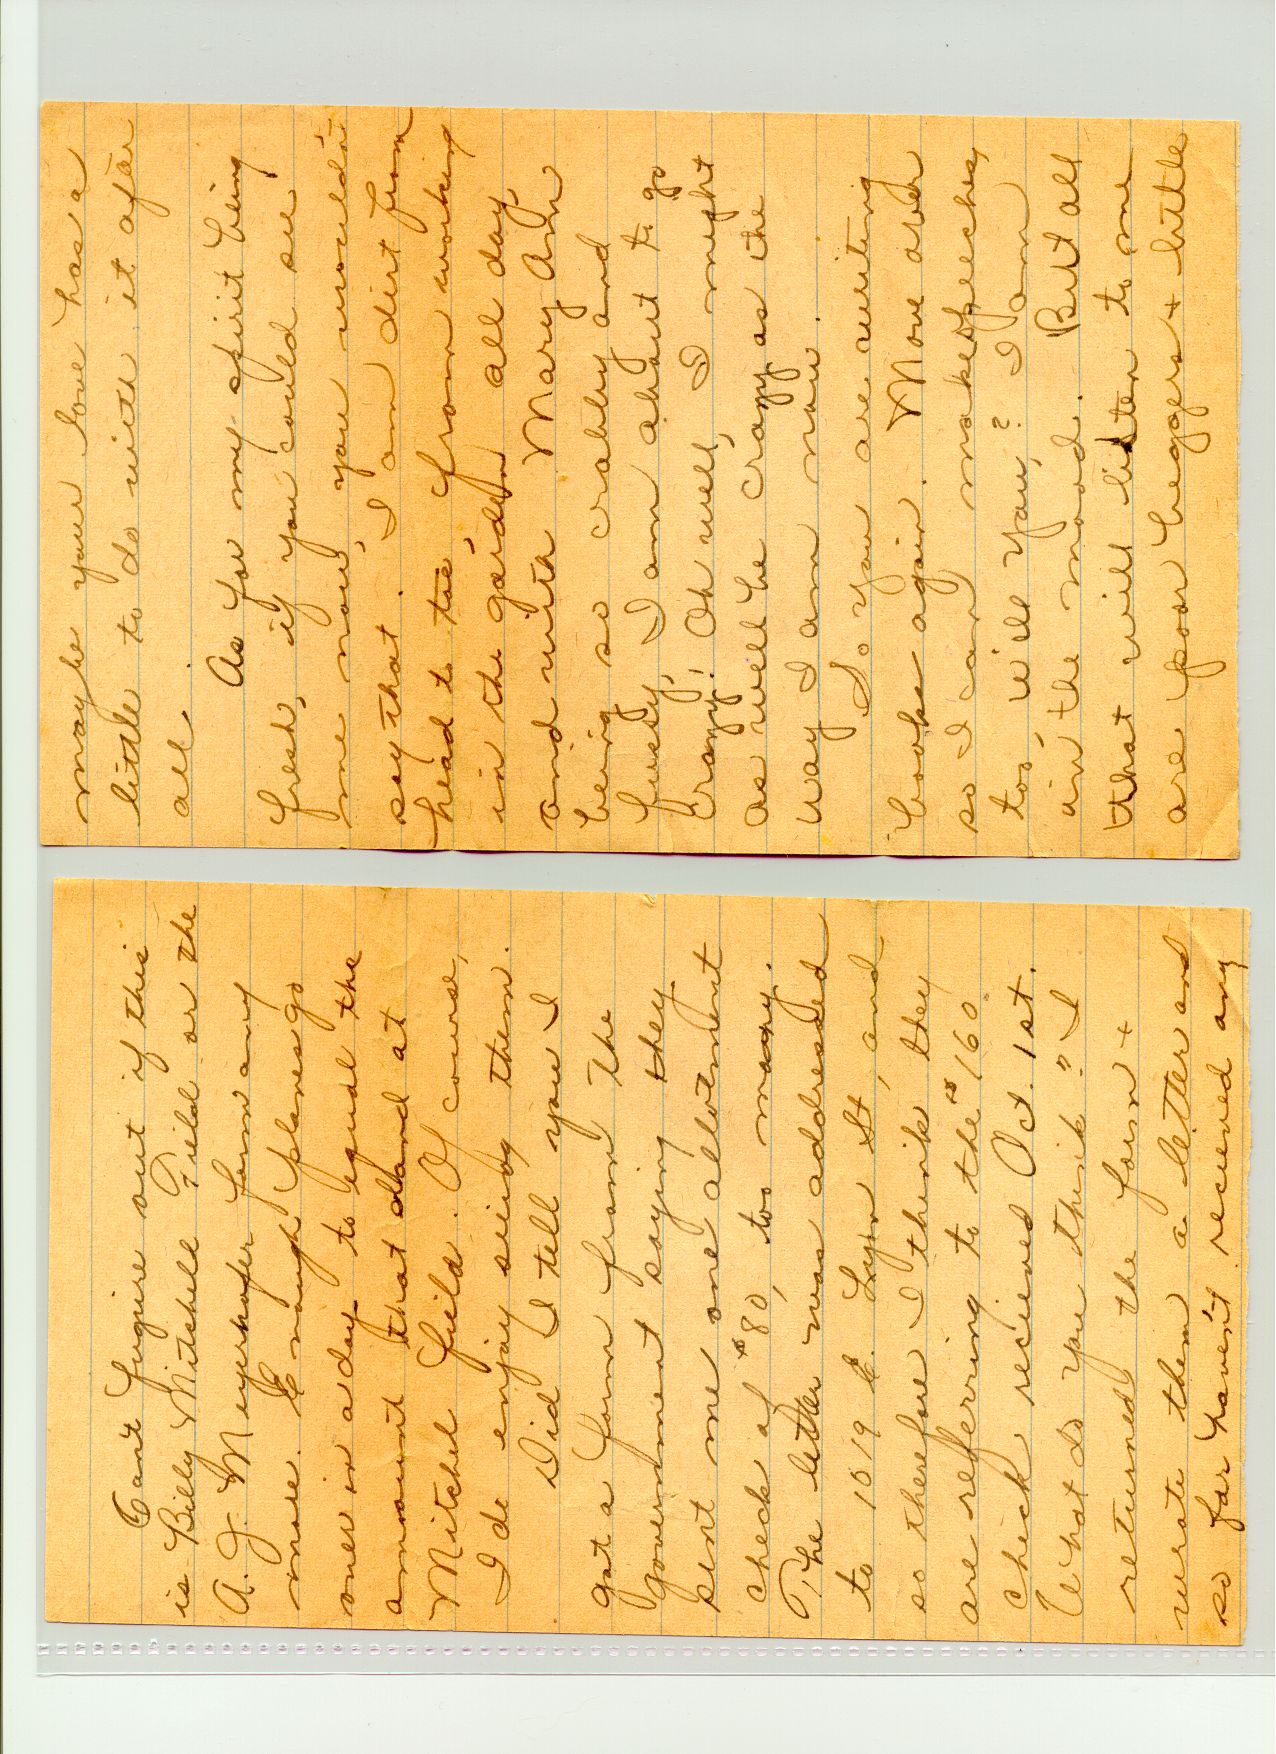 Cant fuguire out if this
is Billy Mitchell Field or the
A. J. Meyerhofer farm any
more. Enough planes go
over in a day to equal the
amount that stand at
Mitchel field. Of course,
I do enjoy seeing them.
Did I tell you I
got a form from the
government saying they
sent me one allotment
check of $80, too many.
The letter was addressed
to 1019 E. Lyon St, and
so therefore I think they
are referring to the $160
check recieved Oct. 1st.
What do you think? I
returned the form +
wrote them a letter and
so far haven't recieved any
maybe your love has a
little to do with it after
all.
As for my spirit being
fresh, if you could see
me now, you wouldn't
say that. I am dirt from
head to toe, from working
in the garden all day,
and with Mary Ann
being so crabby and
fussy, I am about to go
crazy. Oh well, I might
as well be crazy as the
way I am now.
So you are writing
books again. Move over
so I can make speeches,
too, will you? I am
in the mood. But all
that will listen to me
are poor beggers + little